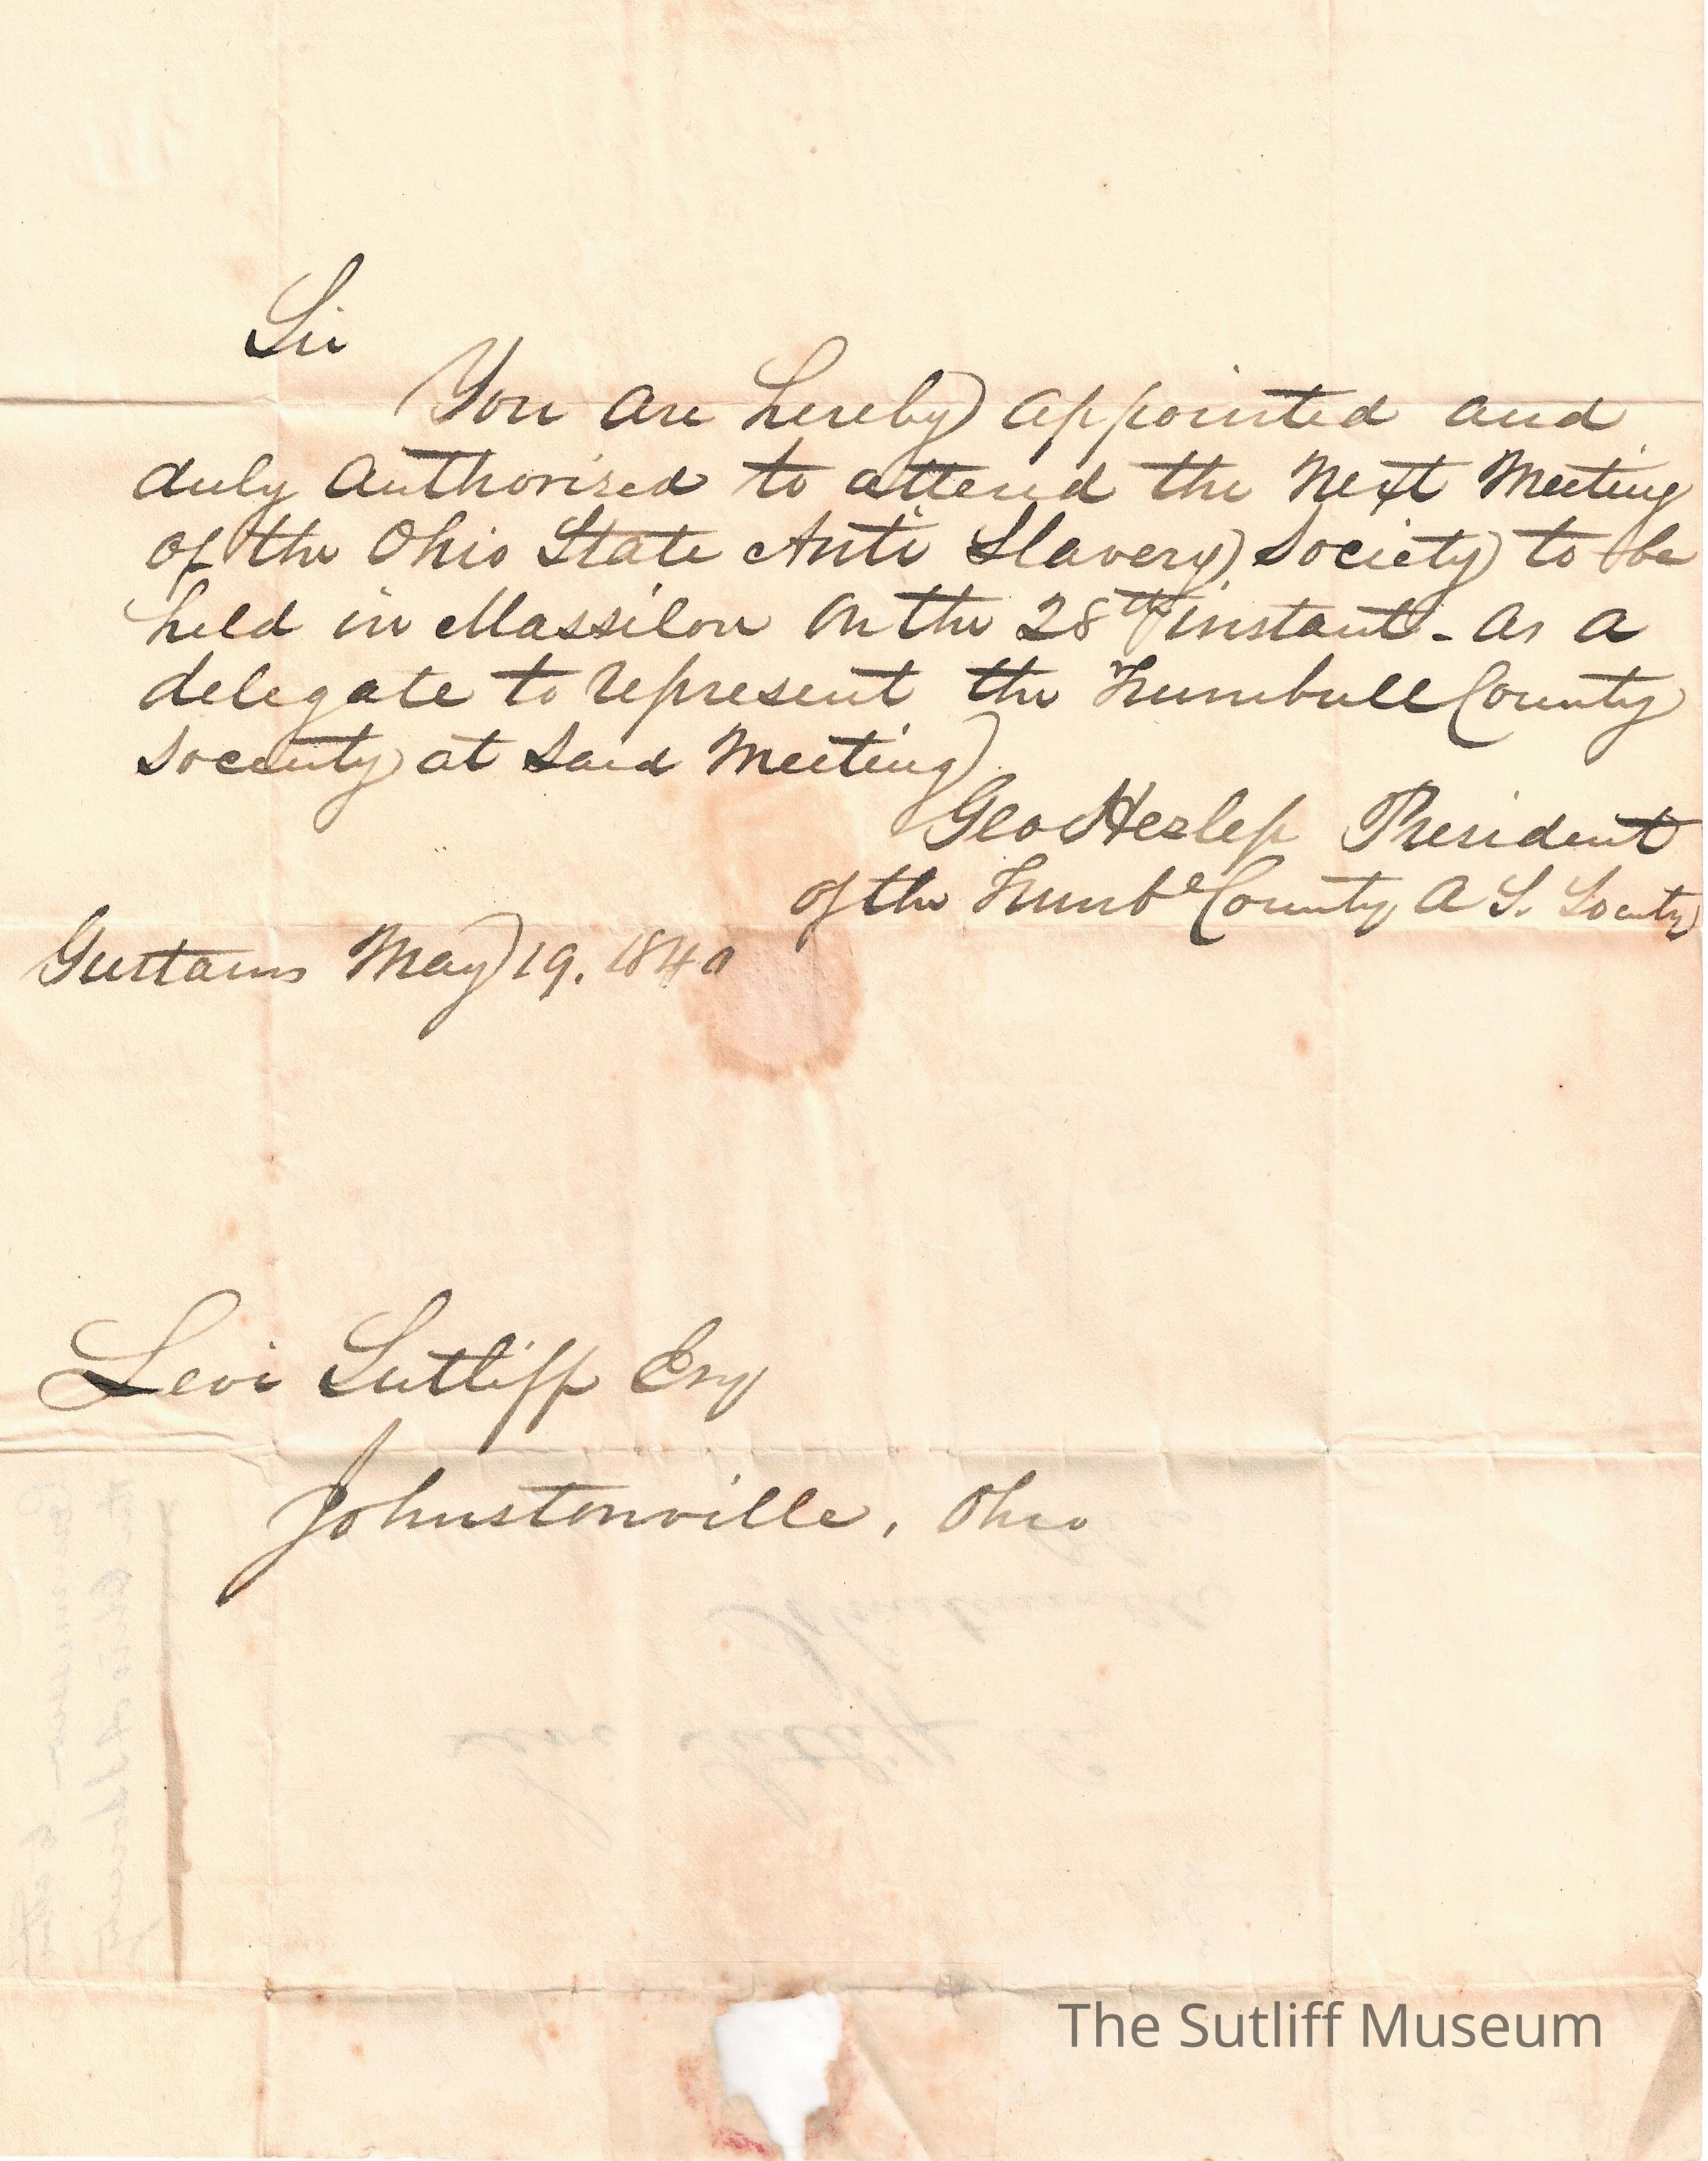 Sir
You are hereby appointed and
duly Authorised to attend the Next Meeting
of the Ohio State Anti Slavery Society to be
held in Massilon on the 28th instant - as a
delegate to represent the Trumbull County
Society at said Meeting
Geo Hezlep President
of the Trumbe County A S. Society
Gustavus May 19. 1840
Levi Sutliff Esq
Johnstonville, Ohio
The Sutliff Museum